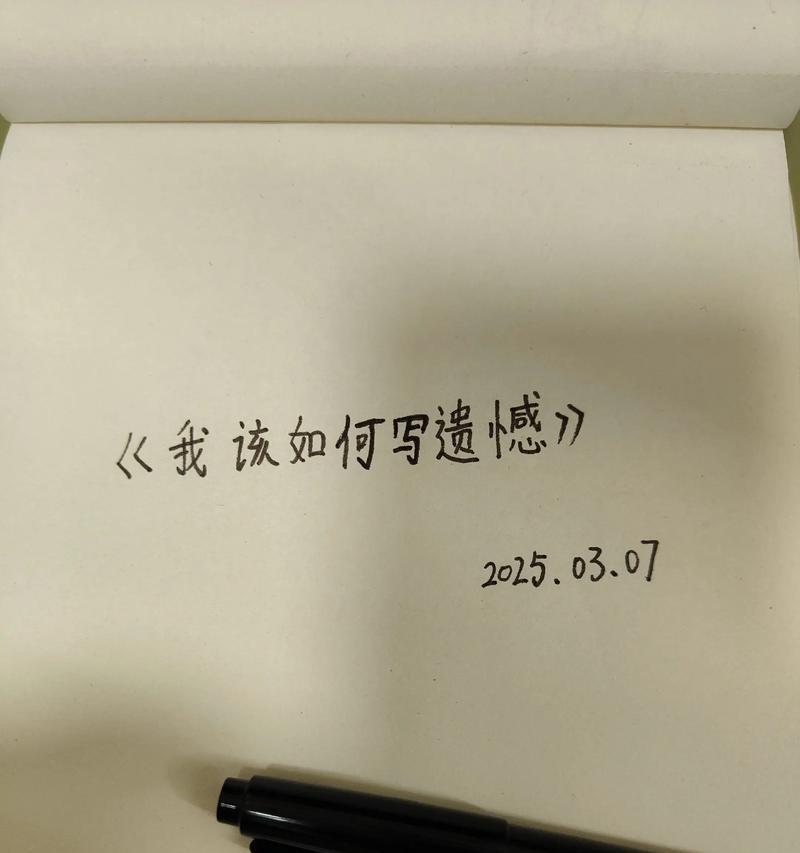 《我该如何写遗憾》
2025.03.07